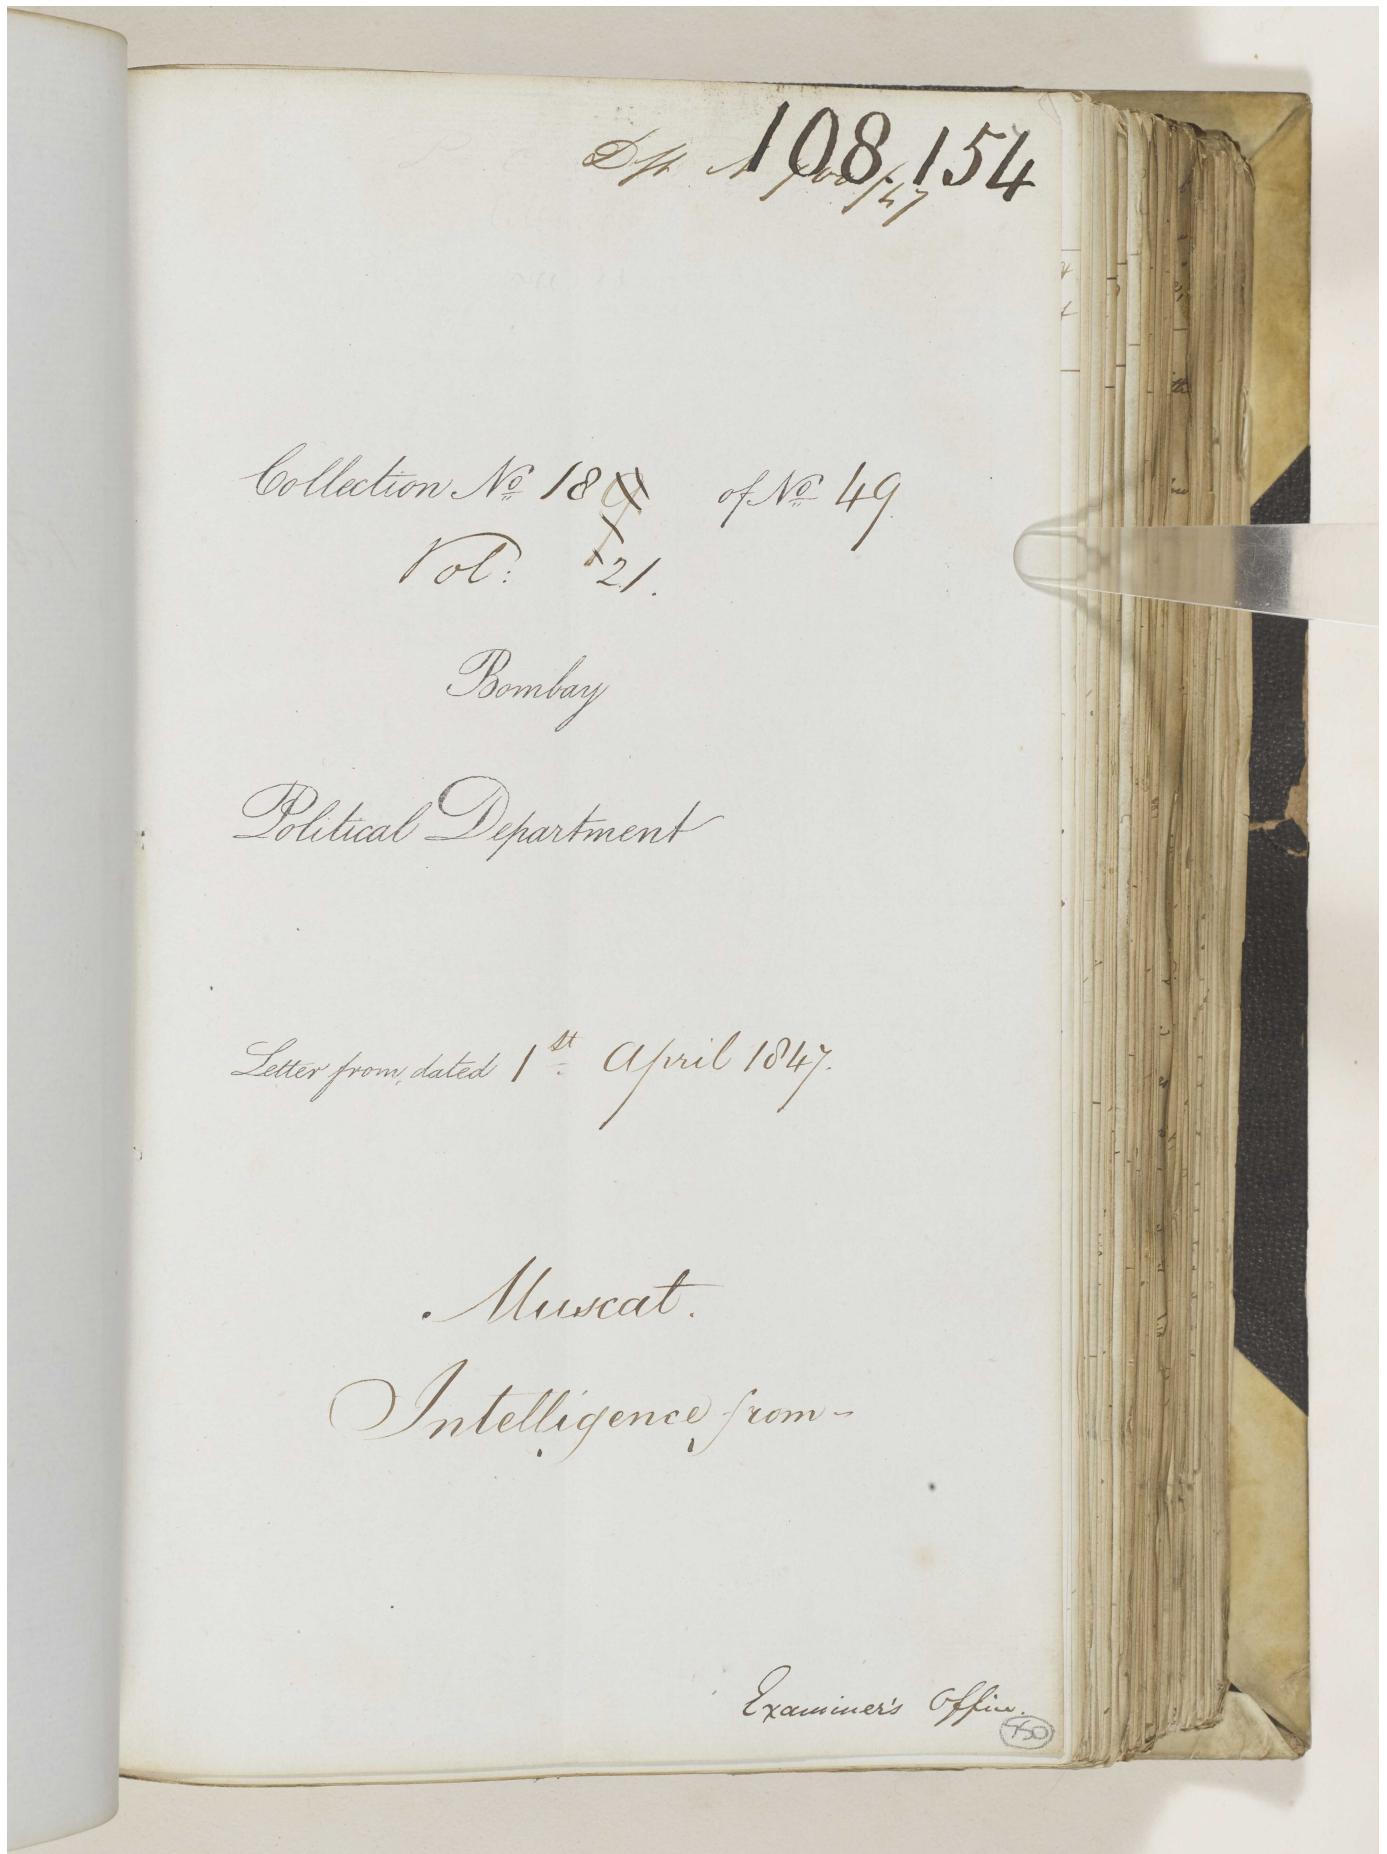 108,154
Dft
Collection No 18 of No 49
Vol: 21.
Bombay
Political Department
Letter from, dated 1st April 1847.
Muscat.
Intelligence from -
Examiner's Office.